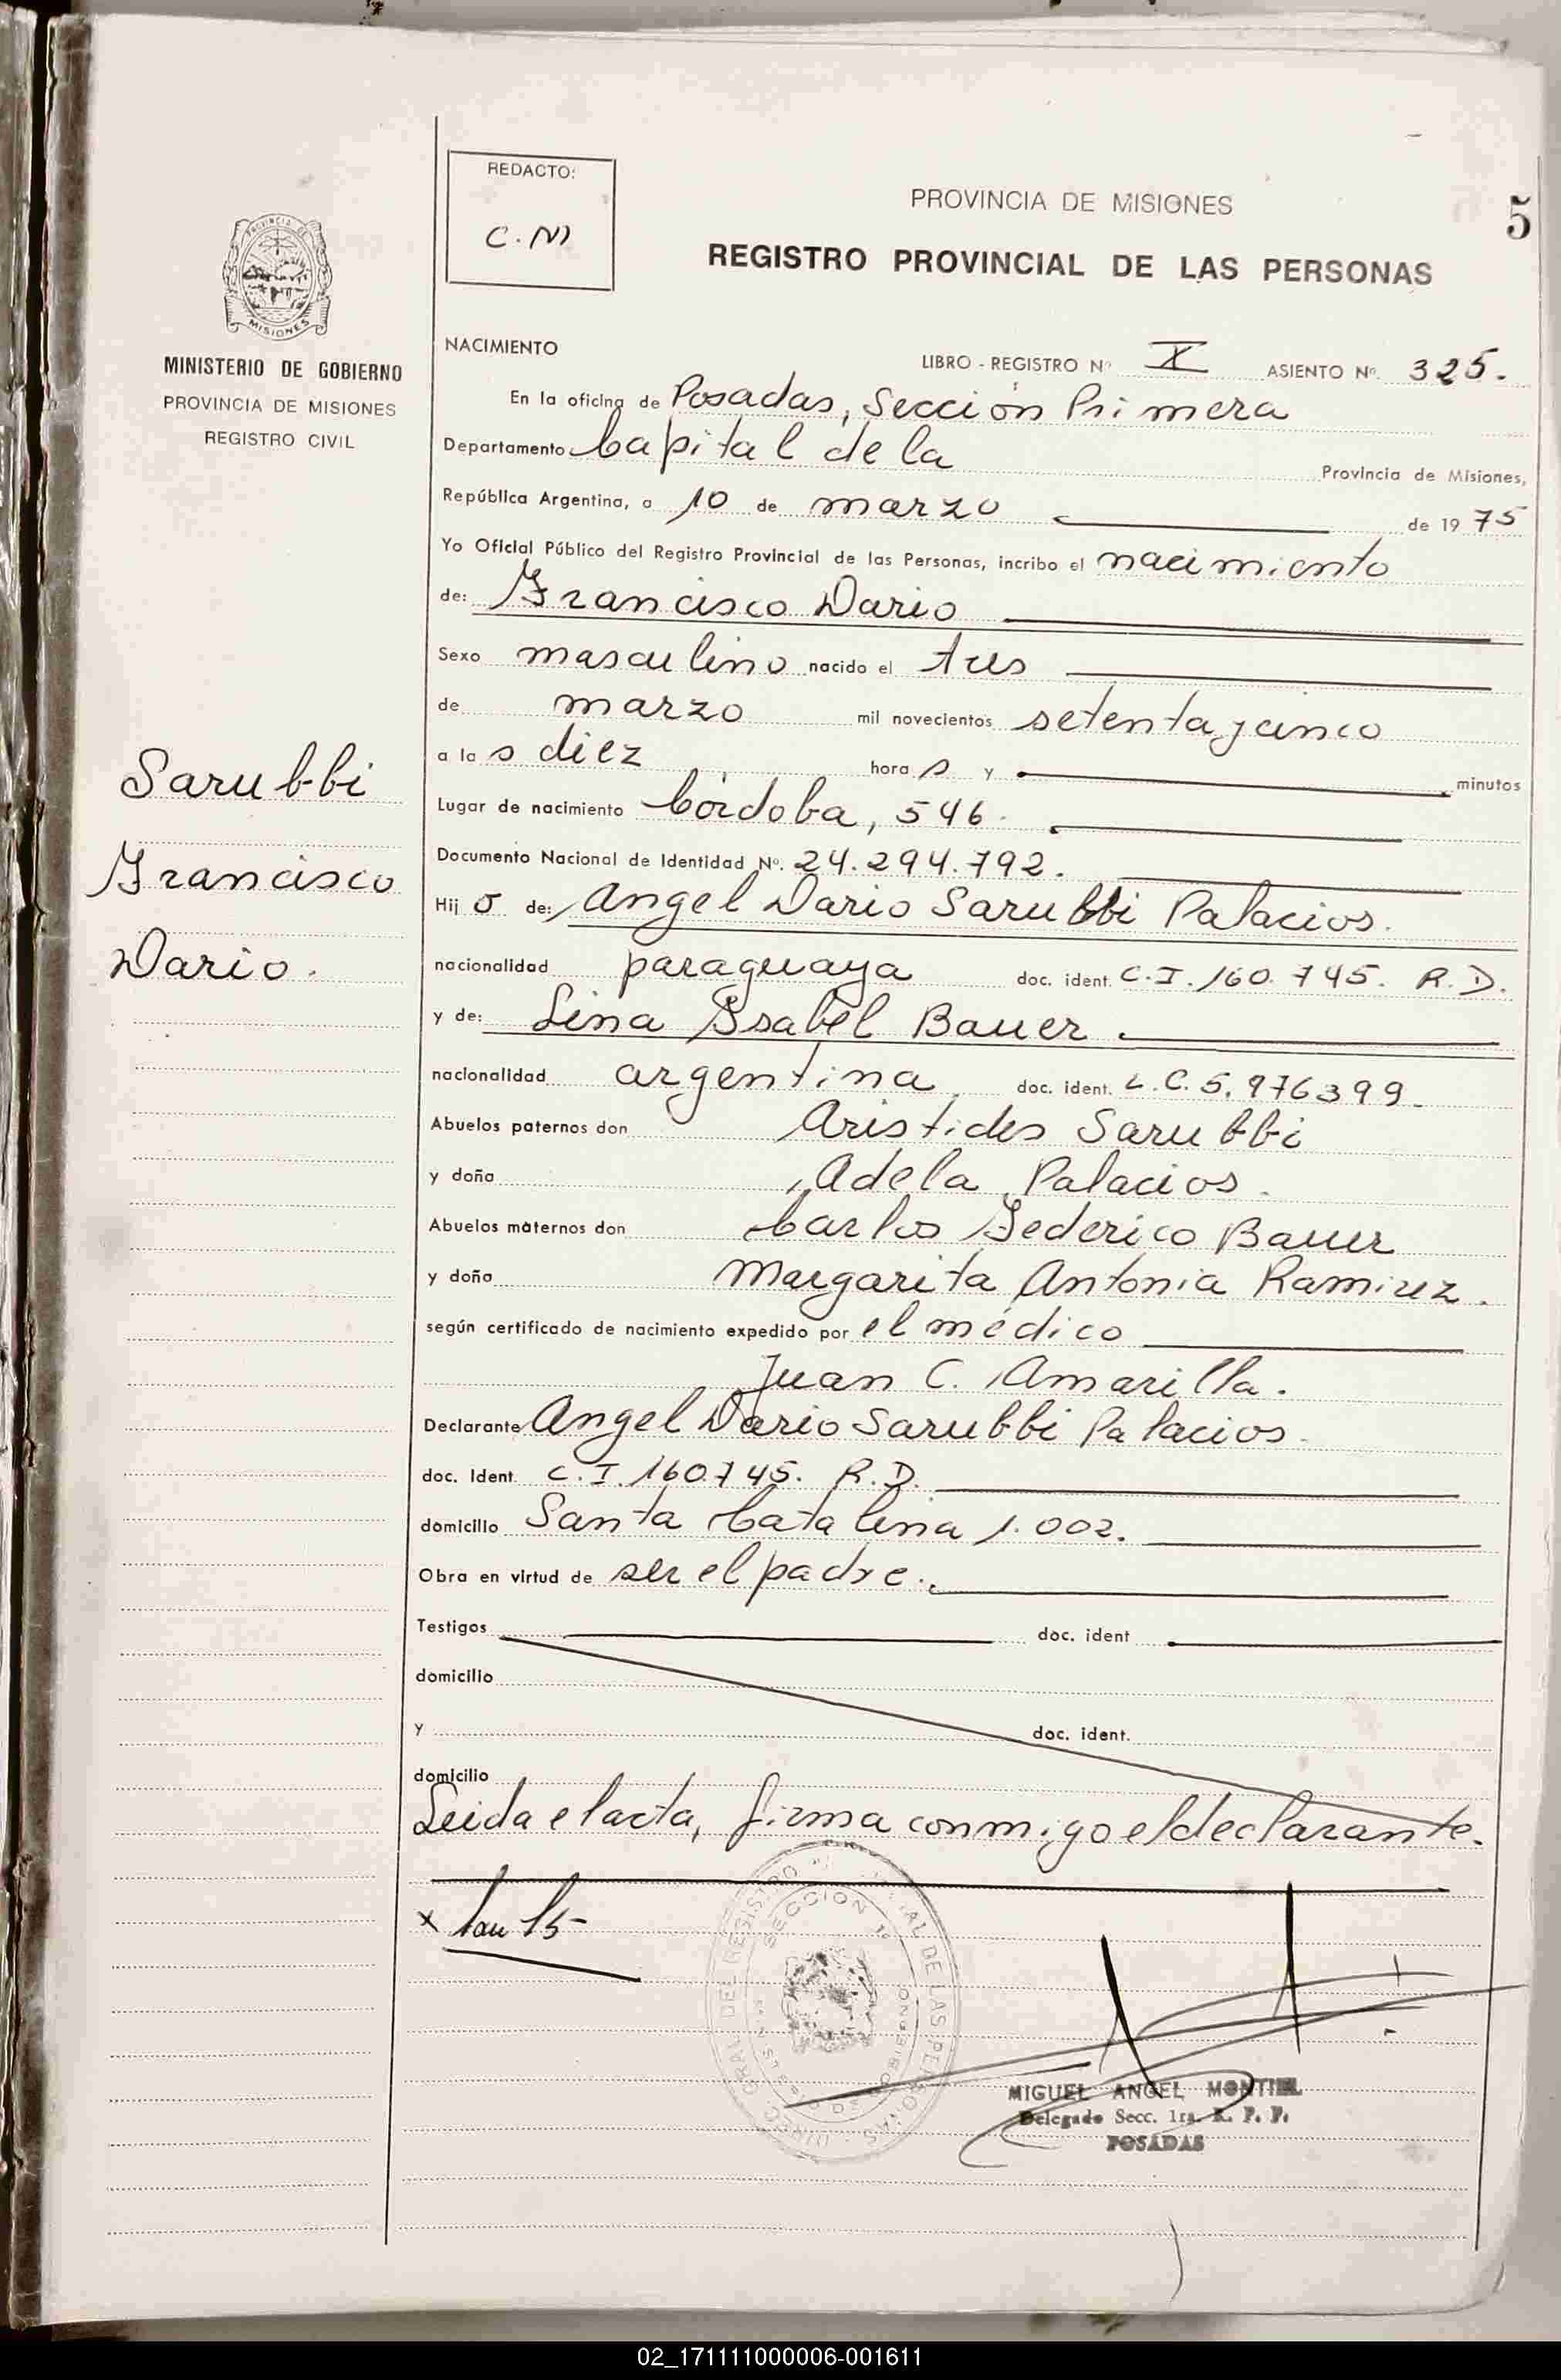 REDACTO:
C.M
PROVINCIA DE MISIONES
5
REGISTRO PROVINCIAL DE LAS PERSONAS
MISIONES
MINISTERIO DE GOBIERNO
PROVINCIA DE MISIONES
REGISTRO CIVIL
Sarubbi
Francisco
Dario.
NACIMIENTO
LIBRO - REGISTRO Nº X ASIENTO Nº. 325.
En la oficina de Posadas, Sección Primera
Departamento Capital de la Provincia de Misiones,
República Argentina, a 10 de marzo de 1975
Yo Oficial Público del Registro Provincial de las Personas, incribo el nacimiento
de: Francisco Dario
Sexo masculino nacido el tres
de marzo mil novecientos setenta y cinco
a las diez horas y minutos
Lugar de nacimiento Córdoba, 546.
Documento Nacional de Identidad Nº. 24.294.792.
Hijo de: Angel Dario Sarubbi Palacios.
nacionalidad paraguaya doc. ident. C.I. 160.745. R.D.
y de: Lina Isabel Bauer.
nacionalidad argentina doc. ident. L.C. 5.976399.
Abuelos paternos don Aristides Sarubbi
y doña Adela Palacios.
Abuelos maternos don Carlos Federico Bauer
y doña Margarita Antonia Ramirez.
según certificado de nacimiento expedido por el médico
Juan C. Amarilla.
Declarante Angel Dario Sarubbi Palacios.
doc. Ident. C.I. 160.745. R.D.
domicilio Santa Catalina 1.002.
Obra en virtud de ser el padre.
Testigos doc. ident
domicilio
y doc. ident.
domicilio
Leida el acta, firma conmigo el declarante.
SECCION 1º
MIGUEL ANGEL MONTIEL
Delegado Secc. 1ra. R. P. P.
POSADAS
02_171111000006-001611